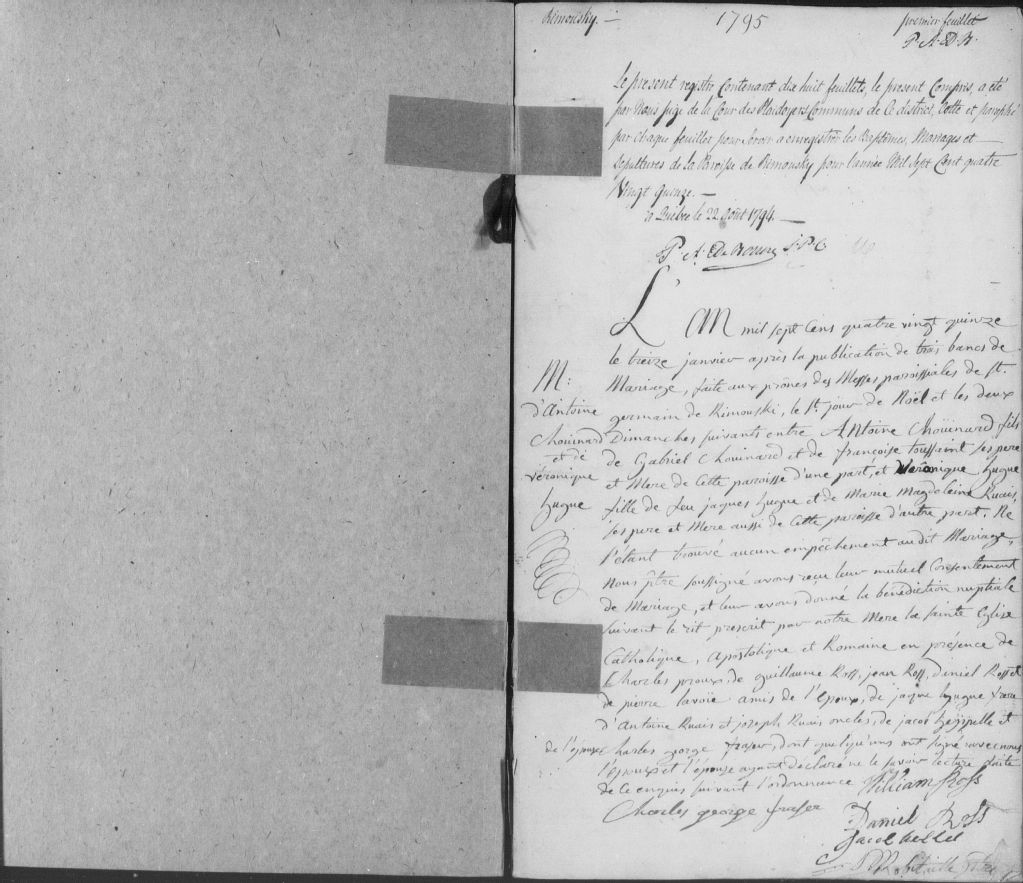 Rimousky. — 1795 premier feuillet
P. A. D. B.
Le present registre Contenant dix huit feuillets, le present Compris, a eté
par Nous juge de la Cour des Plaidoyers Communs de Ce district, Cotté et paraphé
par chaque feuillet pour servir a enregistrer les Baptêmes, Mariages et
Sepultures de la Paroisse de Rimousky pour l'année Mil Sept Cent quatre
Vingt quinze. —
a Quebec le 22 Août 1794. —
P. A. De Bonne J. P. C
L'An mil sept Cens quatre vingt quinze
le treize janvier après la publication de trois bancs de
Mariage, faite aux prônes des Messes paroissiales de St.
germain de Rimouski, le St. jour de Noël et les deux
Dimanches suivants entre Antoine Choüinard fils
de Gabriel Choüinard et de françoise toussaint ses pere
et Mere de Cette paroisse d'une part, et Véronique hugue
fille de feu jaques hugue et de Marie Magdeleine Ruais,
ses pere et Mere aussi de Cette paroisse d'autre part. Ne
s'étant trouvé aucun empêchement audit Mariage,
Nous ptre soussigné avons reçu leur mutuel Consentement
de Mariage, et leur avons donné la bénédiction nuptiale
suivant le rit prescrit par notre Mere la sainte Eglise
Catholique, Apostolique et Romaine en présence de
Charles proux, de guillaume Ross, jean Ross, Daniel Ross et
de pierre lavoïe amis de l'époux, de jaque hugue frere
d'Antoine Ruais et joseph Ruais oncles, de jacob
de l'épouse Charles george fraser, dont quelqu'uns ont signé avec nous
l'époux et l'épouse ayant declaré ne le savoir lecture faite
de Ce enquis suivant l'ordonnance William Ross
Charles george fraser
Daniel Ross
Jacob hellet
Robitaille ptre
M:
d'Antoine
Choüinard
et de
Véronique
hugue